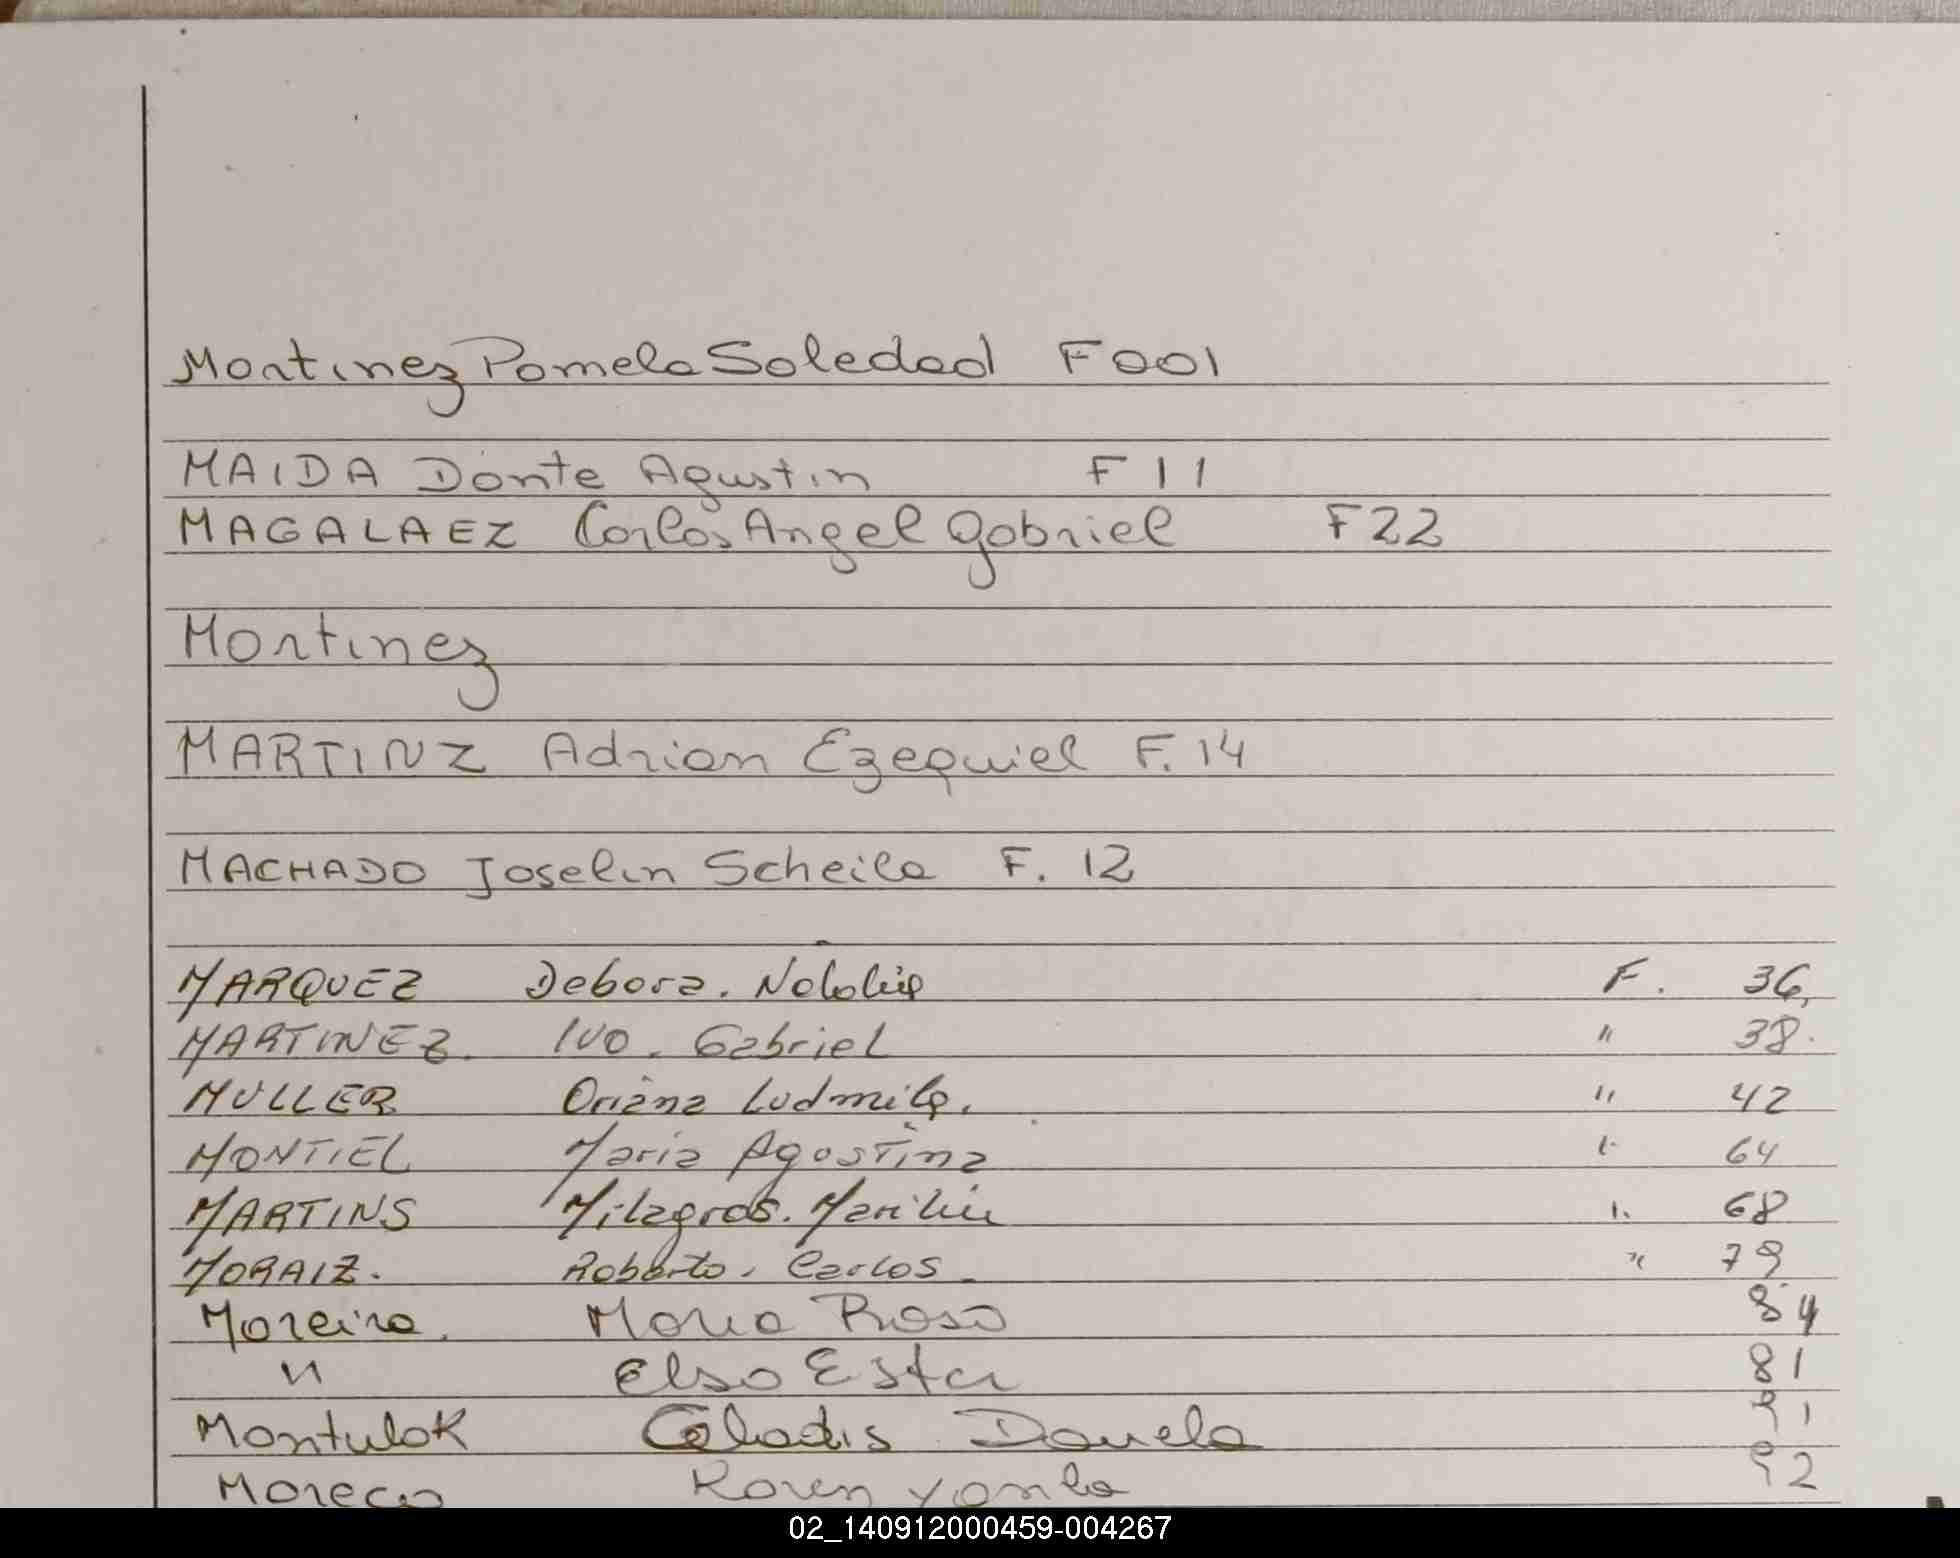 Martinez Pamela Soledad F 001
MAIDA Dante Agustin F 11
MAGALAEZ Carlos Angel Gabriel F 22
Martinez
MARTINZ Adrian Ezequiel F. 14
MACHADO Joselin Scheila F. 12
MARQUEZ Debora. Natalia F. 36,
MARTINEZ. IVO. Gabriel " 38.
MULLER Oriana Ludmila. " 42
MONTIEL Maria Agostina " 64
MARTINS Milagros. " 68
MORAIZ. Roberto. Carlos. " 79
Moreira. Maria Rosa 84
" Elsa Ester 81
Montulok Daniela 91
Karen 92
02_140912000459-004267